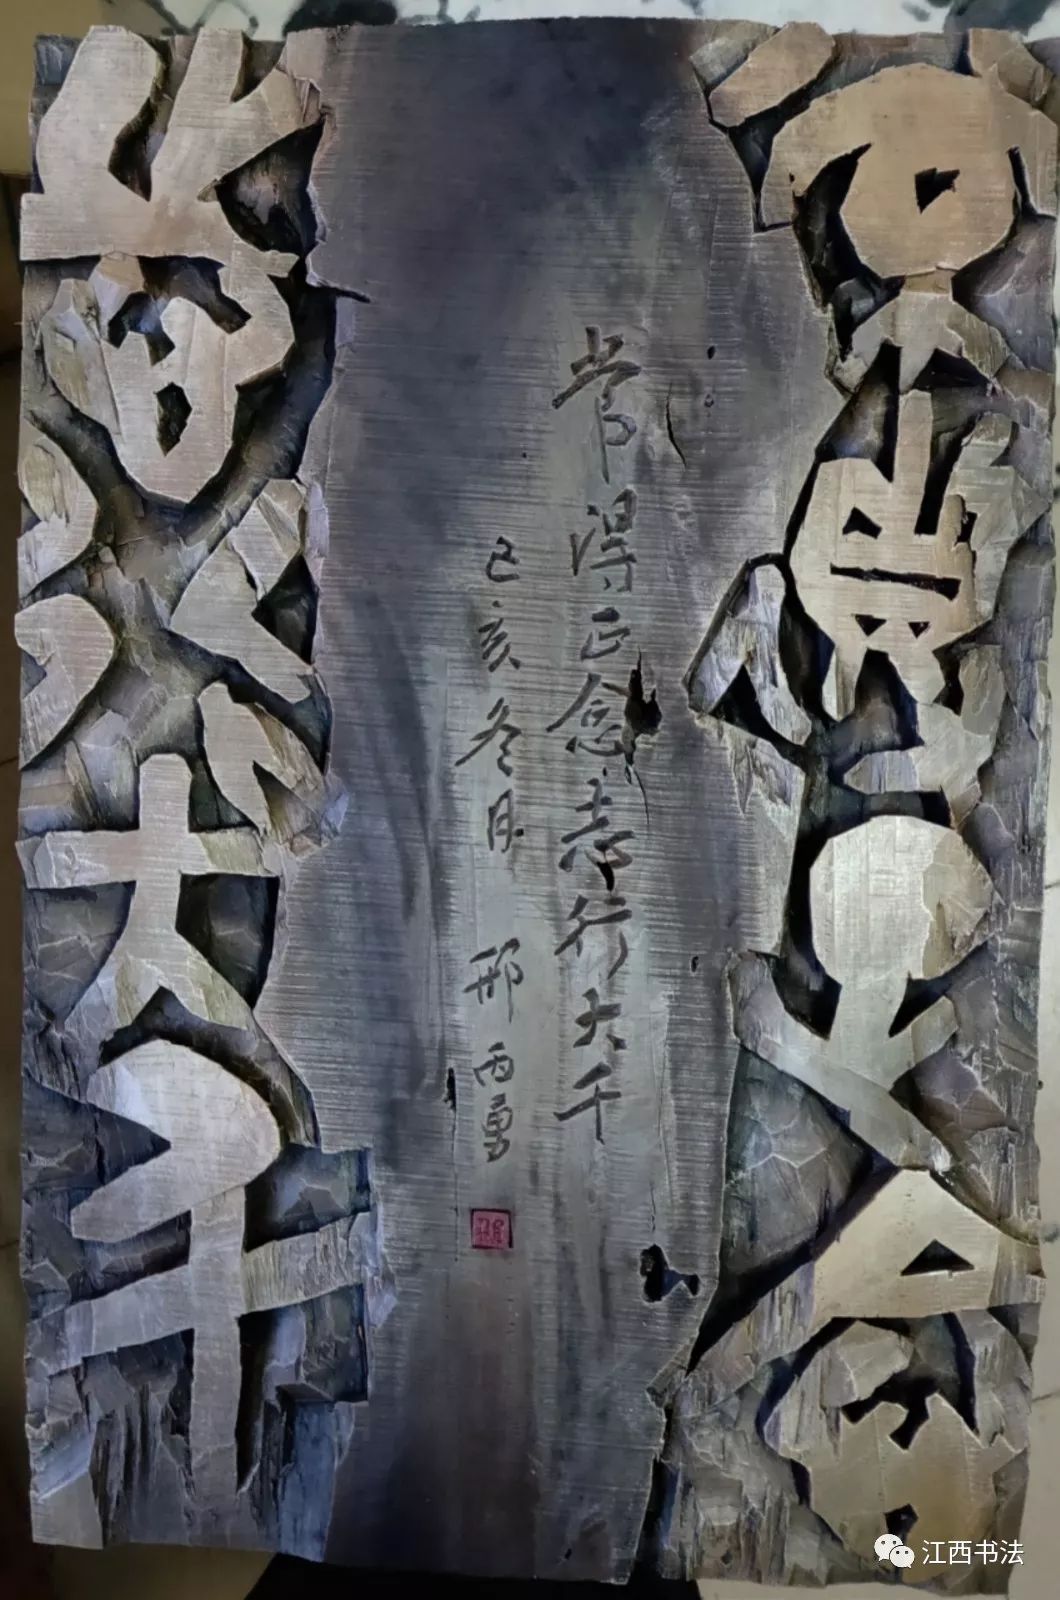 常得正念
志行大千
常得正念志行大千
己亥冬月 邢西勇
江西书法